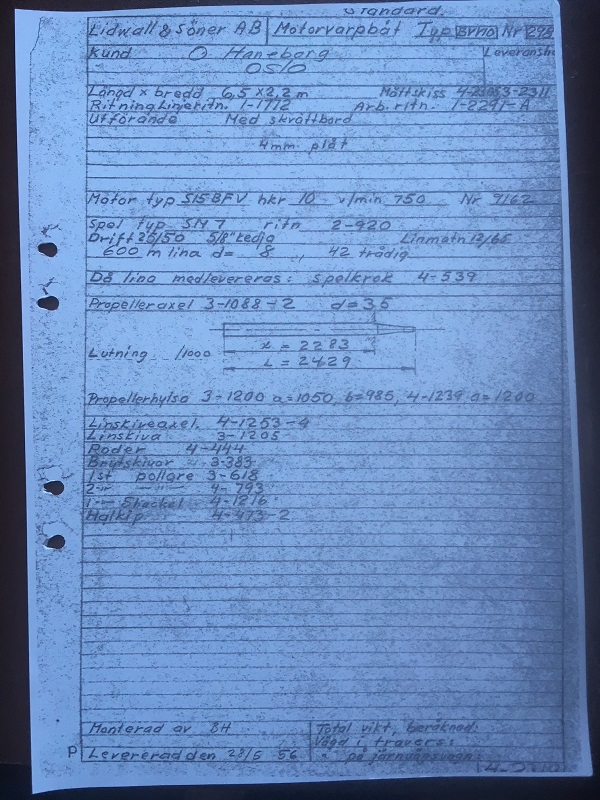 Standard.
Lidwall & Söner AB Motorvarpbåt Typ BV110 Nr
Kund O Haneborg Leveransb
Oslo
Längd x bredd 6,5 x 2,2 m Måttskiss
Ritning Linjeritn. 1-1712 Arb. ritn. 1-2291-A
Utförande Med skvättbord
4mm plåt
Motor typ 515BFV hkr 10 v/min 750 Nr 9162
Spel typ SM7 ritn 2-920
Drift 25/50 5/8" kedja Linmatn 12/65
600 m lina d= 8 42 trådig
Då lina medlevereras: spelkrok 4-539
Propelleraxel 3-1088-2 d=35
x = 2283
Lutning /1000
L = 2429
Propellerhylsa 3-1200 a=1050, b=985, 4-1239 a=1200
Linskiveaxel. 4-1253-4
Linskiva 3-1205
Roder 4-444
Brytskivor 3-383
1st pollare 3-618
2 -"- 4-793
1 -"- Shackel 4-1216
Halkip 4-473-2
Monterad av BH Total vikt, beräknad:
Vägd i travers:
P Levererad den 28/5 56 " på järnvägsvagn